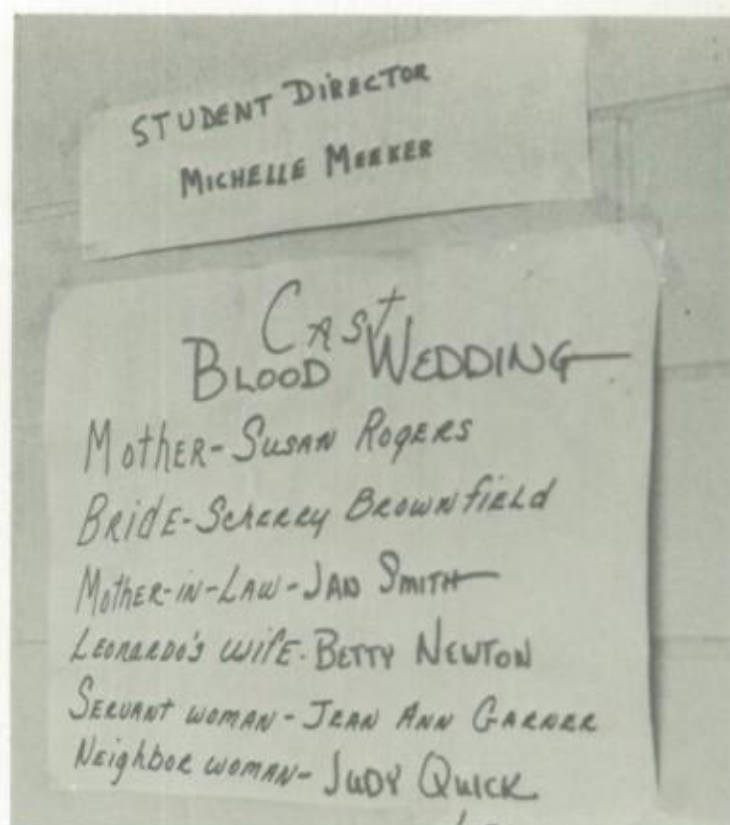 STUDENT DIRECTOR
MICHELLE MEEKER
CAST
BLOOD WEDDING
MOTHER-SUSAN ROGERS
BRIDE-SCHERRY BROWNFIELD
MOTHER-IN-LAW-JAN SMITH
LEONARDO'S WIFE-BETTY NEWTON
SERVANT WOMAN-JEAN ANN GARNER
NEIGHBOR WOMAN-JUDY QUICK